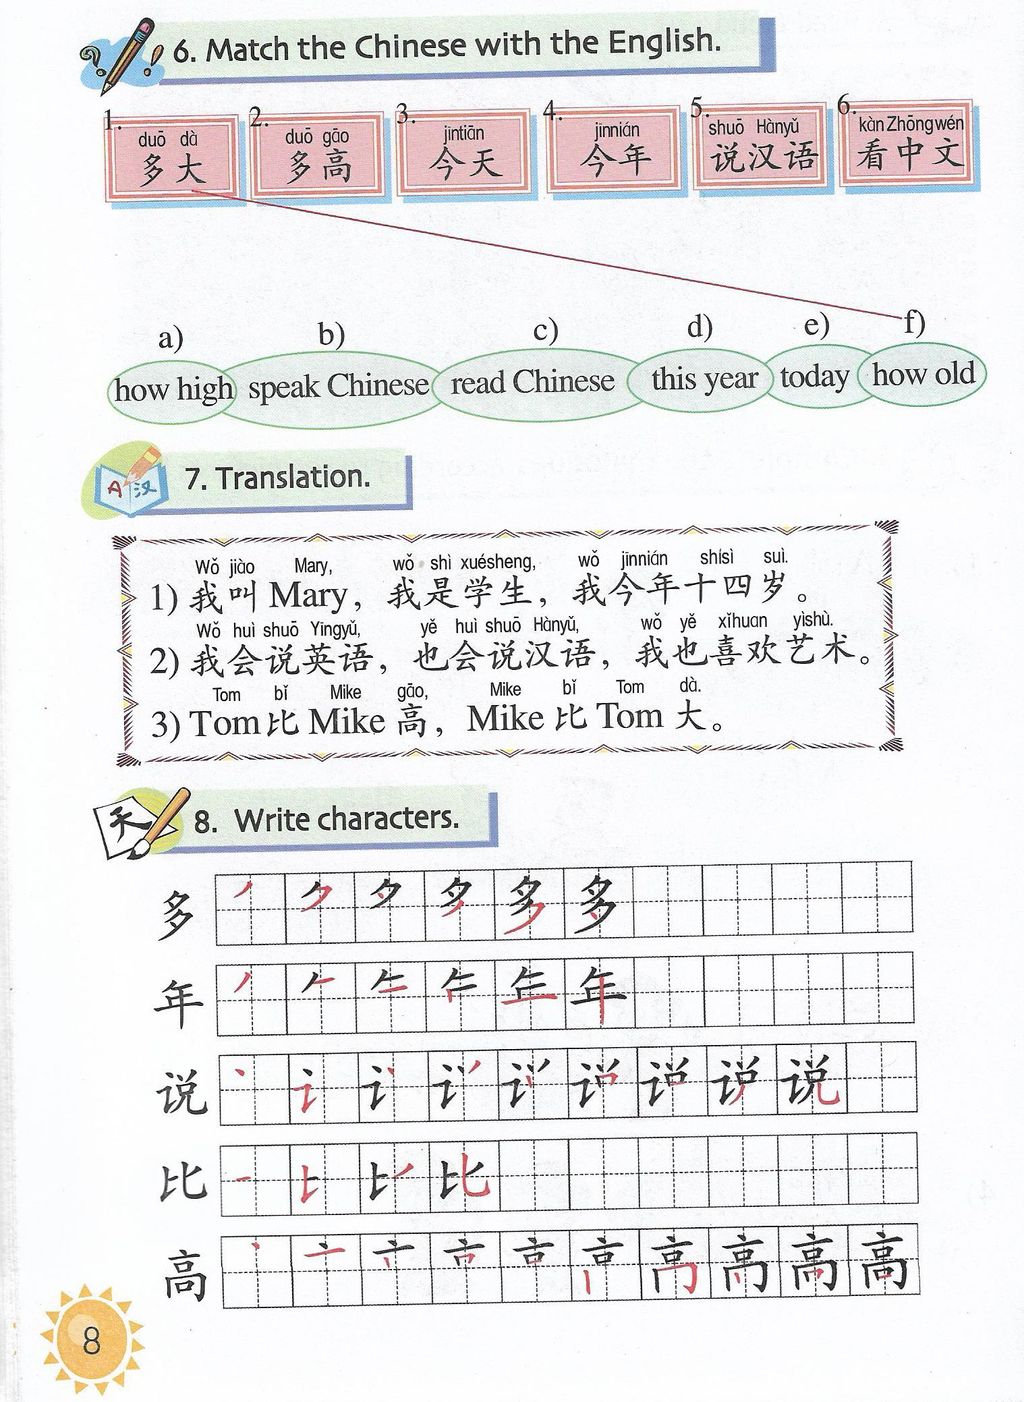 6. Match the Chinese with the English.
1. 2. 3. 4. 5. 6.
duō dà duō gāo jīntiān jīnnián shuō Hànyǔ kàn Zhōngwén
多大 多高 今天 今年 说汉语 看中文
a) b) c) d) e) f)
how high speak Chinese read Chinese this year today how old
A 汉 7. Translation.
Wǒ jiào Mary, wǒ shì xuésheng, wǒ jīnnián shísì suì.
1) 我叫 Mary，我是学生，我今年十四岁。
Wǒ huì shuō Yīngyǔ, yě huì shuō Hànyǔ, wǒ yě xǐhuan yìshù.
2) 我会说英语，也会说汉语，我也喜欢艺术。
Tom bǐ Mike gāo, Mike bǐ Tom dà.
3) Tom 比 Mike 高，Mike 比 Tom 大。
天 8. Write characters.
多 多
年 年
说 说
比 比
高 高
8